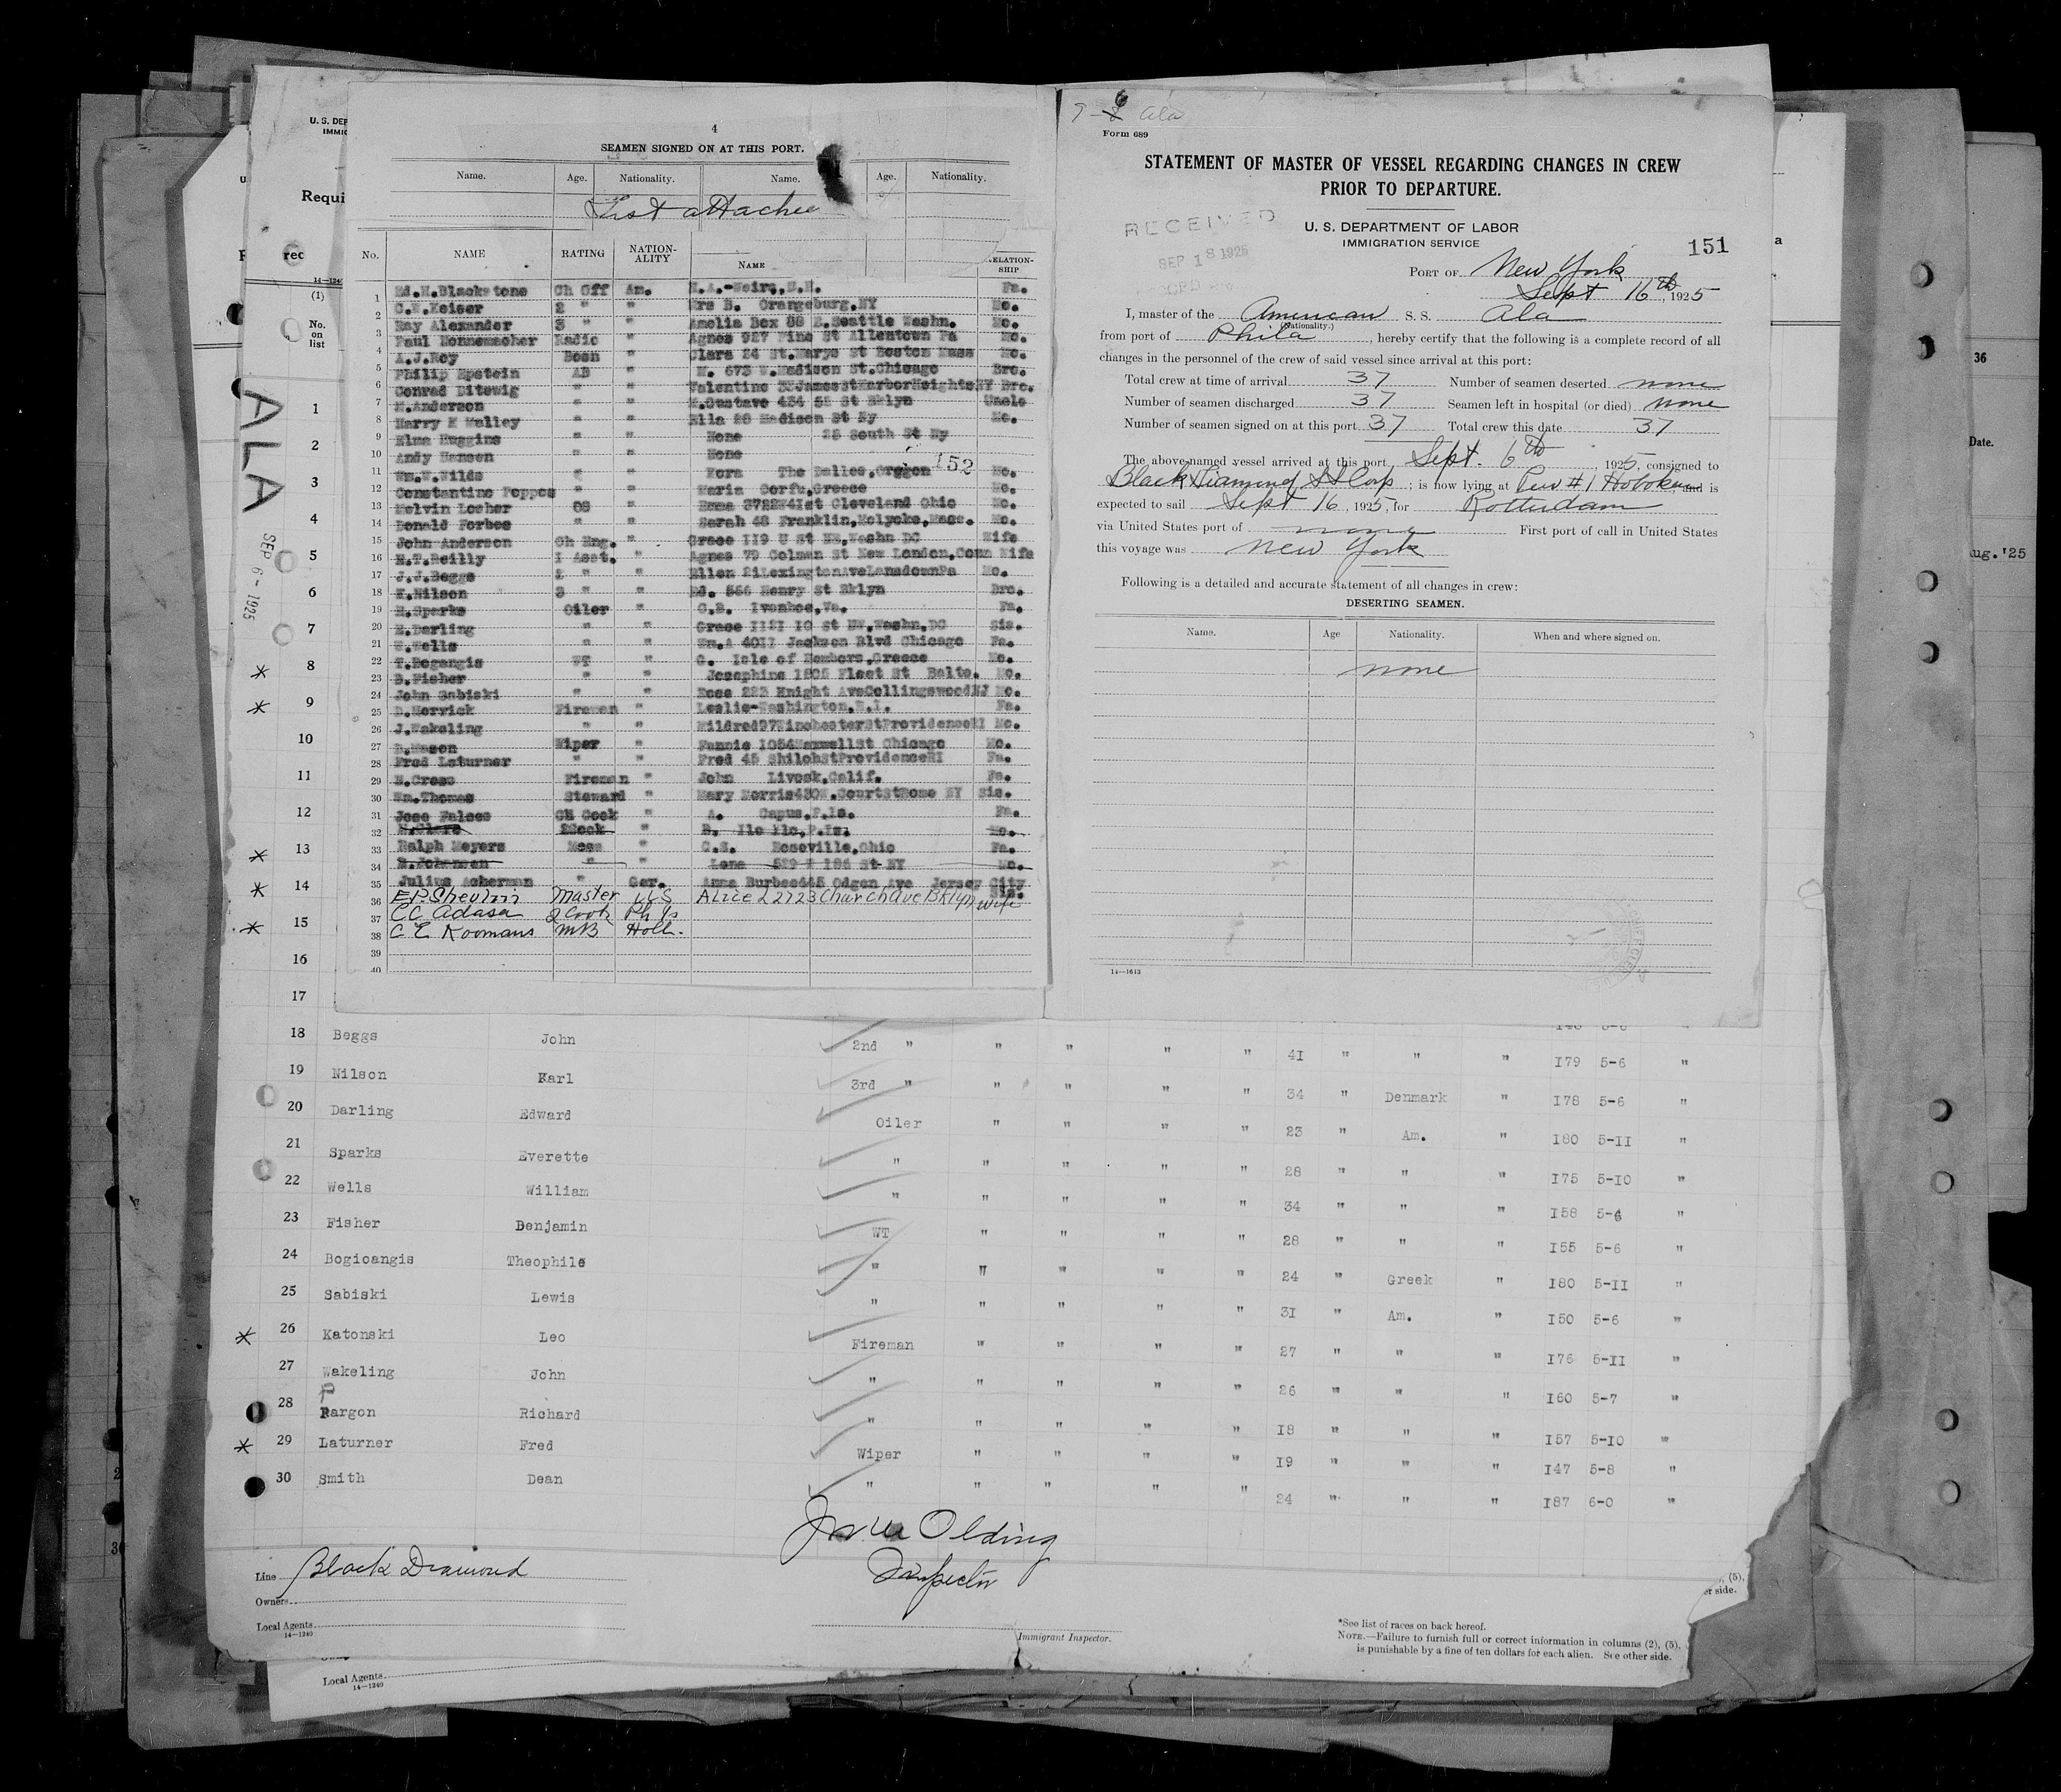 4
SEAMEN SIGNED ON AT THIS PORT.
Name. Age. Nationality. Name. Age. Nationality.
List attached
No. NAME RATING NATION-ALITY NAME RELATION-SHIP
1 Ed.H.Blackstone Ch Off Am. Fa.
2 C.W.Keiser 2 " " Mrs B. Orangeburg,NY Mo.
3 Ray Alexander 3 " " Amelia Box 88 E.Seattle Washn. Mo.
4 Paul Nonnemacher Radio " Agnes 927 Pine St Allentown Pa Mo.
5 A.J.Roy Bosn " Clara 24 St.Marys St Boston Mass Mo.
6 Philip Epstein AB " M. 673 W.Madison St.Chicago Bro.
7 Conrad Ditewig " " Valentine 33JamesStHarborHeightsNY Bro.
8 M.Anderson " " M.Gustave 434 55 St Bklyn Uncle
9 Harry K Malley " " Ella 28 Madison St Ny Mo.
10 Elma Huggins " " None 25 South St Ny
11 Andy Hansen " " None
152
12 Wm.W.Wilds " " Nora The Dalles,Oregon Mo.
13 Constantine Poppos " " Maria Corfu,Greece Mo.
14 Melvin Losher OS " Emma Cleveland Ohio Mo.
15 Donald Forbes " " Sarah 48 Franklin,Holyoke,Mass. Mo.
16 John Anderson Ch Eng. " Grace II9 U St NE,Washn DC Wife
17 E.T.Reilly I Asst. " Agnes 79 Colman St New London,Conn Wife
18 J.J.Beggs 2 " " Ellen 21LexingtonAveLansdownPa Mo.
19 K.Nilson 3 " " Ed. 566 Henry St Bklyn Bro.
20 E.Sparks Oiler " C.B. Ivanhoe,Va. Fa.
21 E.Darling " " Grace II2I IO St NW,Washn,DC Sis.
22 W.Wells " " Wm.A 40II Jackson Blvd Chicago Fa.
23 T.Bogangis WT " G. Isle of Greece Mo.
24 B.Fisher " " Josephine 1805 Fleet St Balto. Mo.
25 John Sabiski " " Rose 223 Knight AveCollingswoodNJ Mo.
26 D.Herrick Fireman " Leslie-Washington,R.I. Fa.
27 J.Wakeling " " Mildred97WinchesterStProvidenceRI Mo.
28 R.Mason Wiper " Fannie 1054MaxwellSt Chicago Mo.
29 Fred Laturner " " Fred 45 ShilohStProvidenceRI Fa.
30 H.Cross Fireman " John Calif. Fa.
31 Wm.Thomas Steward " Mary Morris430W.CourtStRome NY Sis.
32 Jose Falces CH Cook " A. Capus,P.Is. Fa.
33 2Cook " B. Ilo Ilo,P.Is. Mo.
34 Ralph Meyers Mess " C.S. Roseville,Ohio Fa.
35 B.Johansen " " Lena 529 W 186 St NY Mo.
36 Julius Acherman " Ger. Anna Burbee445 Odgen Ave Jersey City Sis.
37 E.P.Shevlin Master U.S Alice 2 2723 Church Ave Bklyn wife
38 C C Adasa 2 Cook Ph Is
39 C E Koomans MB Holl.
40
7-6 Ala
Form 689
STATEMENT OF MASTER OF VESSEL REGARDING CHANGES IN CREW
PRIOR TO DEPARTURE.
RECEIVED
SEP 18 1925
U. S. DEPARTMENT OF LABOR
IMMIGRATION SERVICE
151
PORT OF New York
Sept 16th, 1925
I, master of the American S. S. Ala
(Nationality.)
from port of Phila, hereby certify that the following is a complete record of all
changes in the personnel of the crew of said vessel since arrival at this port:
Total crew at time of arrival 37 Number of seamen deserted none
Number of seamen discharged 37 Seamen left in hospital (or died) none
Number of seamen signed on at this port 37 Total crew this date 37
The above-named vessel arrived at this port Sept. 6th, 1925, consigned to
Black Diamond SS Corp; is now lying at Pier #1 Hoboken, and is
expected to sail Sept 16, 1925, for Rotterdam
via United States port of none First port of call in United States
this voyage was New York
Following is a detailed and accurate statement of all changes in crew:
DESERTING SEAMEN.
Name. Age. Nationality. When and where signed on.
none
14—1613
U. S. DEP
IMMIG
Requi
rec
14—1240
(1)
No.
on
list
ALA
SEP 6 - 1925
1
2
3
4
5
6
7
* 8
* 9
10
11
12
* 13
* 14
* 15
16
17
18 Beggs John 2nd " " " " " 41 " " " I79 5-6 "
19 Nilson Karl 3rd " " " " " 34 " Denmark " I78 5-6 "
20 Darling Edward Oiler " " " " 23 " Am. " I80 5-II "
21 Sparks Everette " " " " " 28 " " " I75 5-IO "
22 Wells William " " " " " 34 " " " I58 5-4 "
23 Fisher Benjamin WT " " " " 28 " " " I55 5-6 "
24 Bogioangis Theophile " " " " " 24 " Greek " I80 5-II "
25 Sabiski Lewis " " " " " 31 " Am. " I50 5-6 "
* 26 Katonski Leo Fireman " " " " 27 " " " I76 5-II "
27 Wakeling John " " " " " 26 " " " I60 5-7 "
28 Pargon Richard " " " " " I8 " " " I57 5-IO "
* 29 Laturner Fred Wiper " " " " I9 " " " I47 5-8 "
30 Smith Dean " " " " " 24 " " " I87 6-0 "
Olding
Inspector
Line Black Diamond
Owners
Local Agents
14—1240
Immigrant Inspector.
*See list of races on back hereof.
NOTE.—Failure to furnish full or correct information in columns (2), (5),
is punishable by a fine of ten dollars for each alien. See other side.
Local Agents
14—1240
, (5),
er side.
36
Date.
Aug.'25